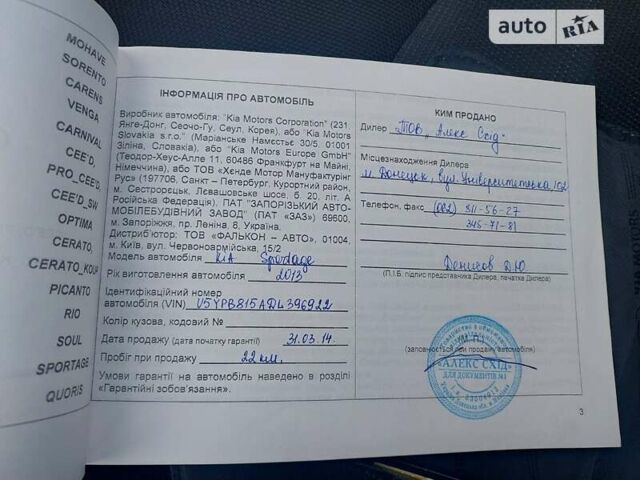 auto RIA
MOHAVE
SORENTO
CARENS
VENGA
CARNIVAL
CEE'D,
PRO_CEE'D,
CEE'D_SW
OPTIMA
CERATO,
CERATO_KOUP
PICANTO
RIO
SOUL
SPORTAGE
QUORIS
ІНФОРМАЦІЯ ПРО АВТОМОБІЛЬ
Виробник автомобіля: "Kia Motors Corporation" (231,
Янге-Донг, Сеочо-Гу, Сеул, Корея), або "Kia Motors
Slovakia s.r.o." (Маріанське Намєстьє 30/5, 01001
Зіліна, Словакія), або "Kia Motors Europe GmbH"
(Теодор-Хеус-Алле 11, 60486 Франкфурт на Майні,
Німеччина), або ТОВ «Хєнде Мотор Мануфактурінг
Рус» (197706, Санкт – Петербург, Курортний район,
м. Сестрорєцьк, Лєвашовське шосе, б. 20, літ. А
Російська Федерація). ПАТ "ЗАПОРІЗЬКИЙ АВТО-
МОБІЛЕБУДІВНИЙ ЗАВОД" (ПАТ «ЗАЗ») 69600,
м. Запоріжжя, пр. Леніна, 8, Україна.
Дистриб'ютор: ТОВ «ФАЛЬКОН – АВТО», 01004,
м. Київ, вул. Червоноармійська, 15/2
Модель автомобіля KIA Sportage
Рік виготовлення автомобіля 2013
Ідентифікаційний номер
автомобіля (VIN) U5YPB815ADL396922
Колір кузова, кодовий №
Дата продажу (дата початку гарантії) 31.03.14.
Пробіг при продажу 22 км.
Умови гарантії на автомобіль наведено в розділі
«Гарантійні зобов'язання».
КИМ ПРОДАНО
Дилер "ТОВ, Алекс Схід"
Місцезнаходження Дилера
м. Донецьк, вул. Університетська 102
Телефон, факс (062) 311-56-27
345-71-81
Денисов Д.Ю
(П.І.Б. підпис представника Дилера, печатка Дилера)
(заповнюється при продажу автомобіля)
«АЛЕКС СХІД»
ДЛЯ ДОКУМЕНТІВ №1
3